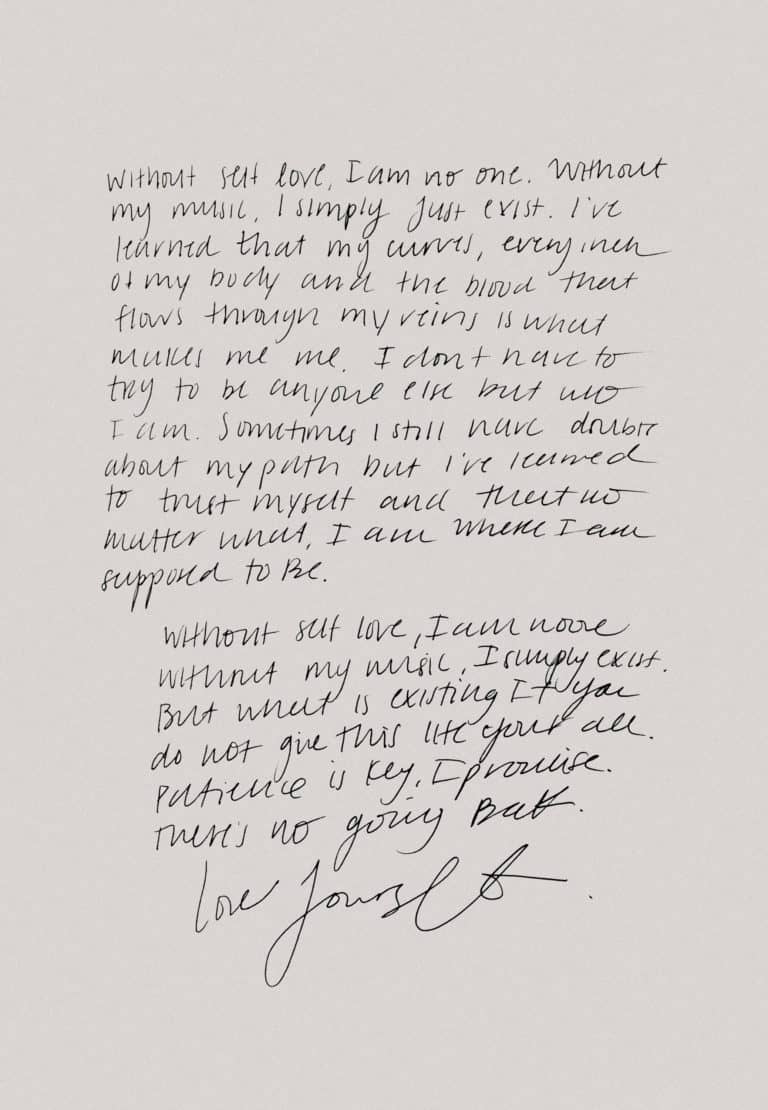 Without self love, I am no one. Without
my music, I simply just exist. I've
learned that my curves, every inch
of my body and the blood that
flows through my veins is what
makes me me. I don't have to
try to be anyone else but who
I am. Sometimes I still have doubts
about my path but I've learned
to trust myself and that no
matter what, I am where I am
supposed to Be.
Without self love, I am no one
without my music, I simply exist.
But what is existing If you
do not give this life your all.
Patience is key, I promise.
There's no going Back.
Love Yourself.